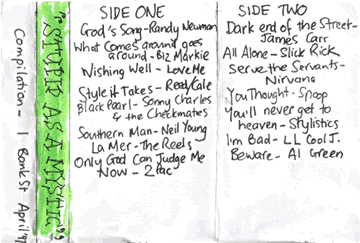 Compilation - 1 Bank St April '97
"STUPID AS A MYSTIC"
SIDE ONE
God's Song - Randy Newman
What Comes around goes
around - Biz Markie
Wishing Well - Love Me
Style it Takes - Reed/Cale
Black Pearl - Sonny Charles
& the Checkmates
Southern Man - Neil Young
La Mer - The Reels
Only God Can Judge Me
Now - 2Pac
SIDE TWO
Dark end of the Street -
James Carr
All Alone - Slick Rick
Serve the Servants -
Nirvana
You Thought - Snoop
You'll never get to
heaven - Stylistics
I'm Bad - LL Cool J.
Beware - Al Green